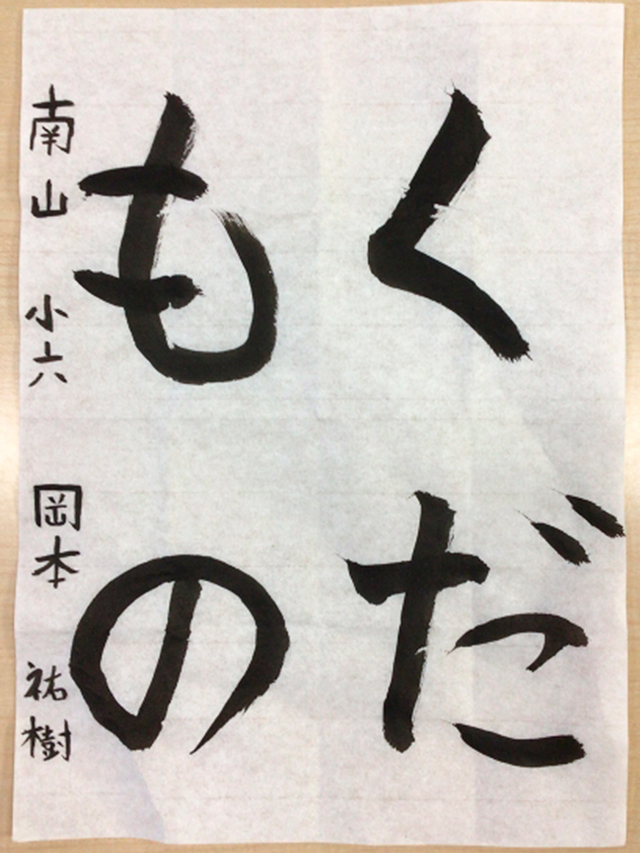 くだ
もの
南山 小六 岡本 祐樹